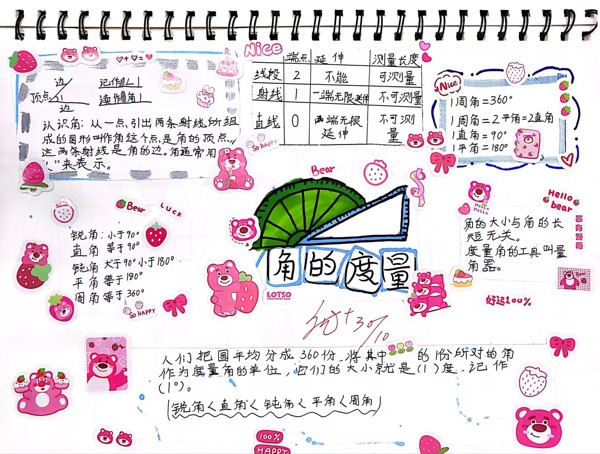 Nice
端点 延伸 测量长度
线段 2 不能 可测量
射线 1 一端无限延伸 不可测量
直线 0 两端无限延伸 不可测量
边
顶点 1
边
记作∠1
读作角1
认识角:从一点引出两条射线所组
成的图形叫作角这个点是角的顶点,
这两条射线是角的边。角通常用
"∠"来表示。
SO HAPPY
Nice
1周角=360°
1周角=2平角=4直角
1直角=90°
1平角=180°
Bear
Bear LUCK
锐角:小于90°
直角 等于90°
钝角 大于90°小于180°
平角 等于180°
周角 等于360°
SO HAPPY
角的度量
LOTSO
Hello bear
角的大小与角的长
短无关。
度量角的工具叫量
角器。
好运100%
人们把圆平均分成360份,将其中 的1份所对的角
作为度量角的单位,它们的大小就是(1)度,记作
(1°)。
锐角<直角<钝角<平角<周角
100%
HAPPY